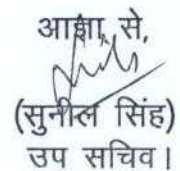 आज्ञा से,
(सुनील सिंह)
उप सचिव।